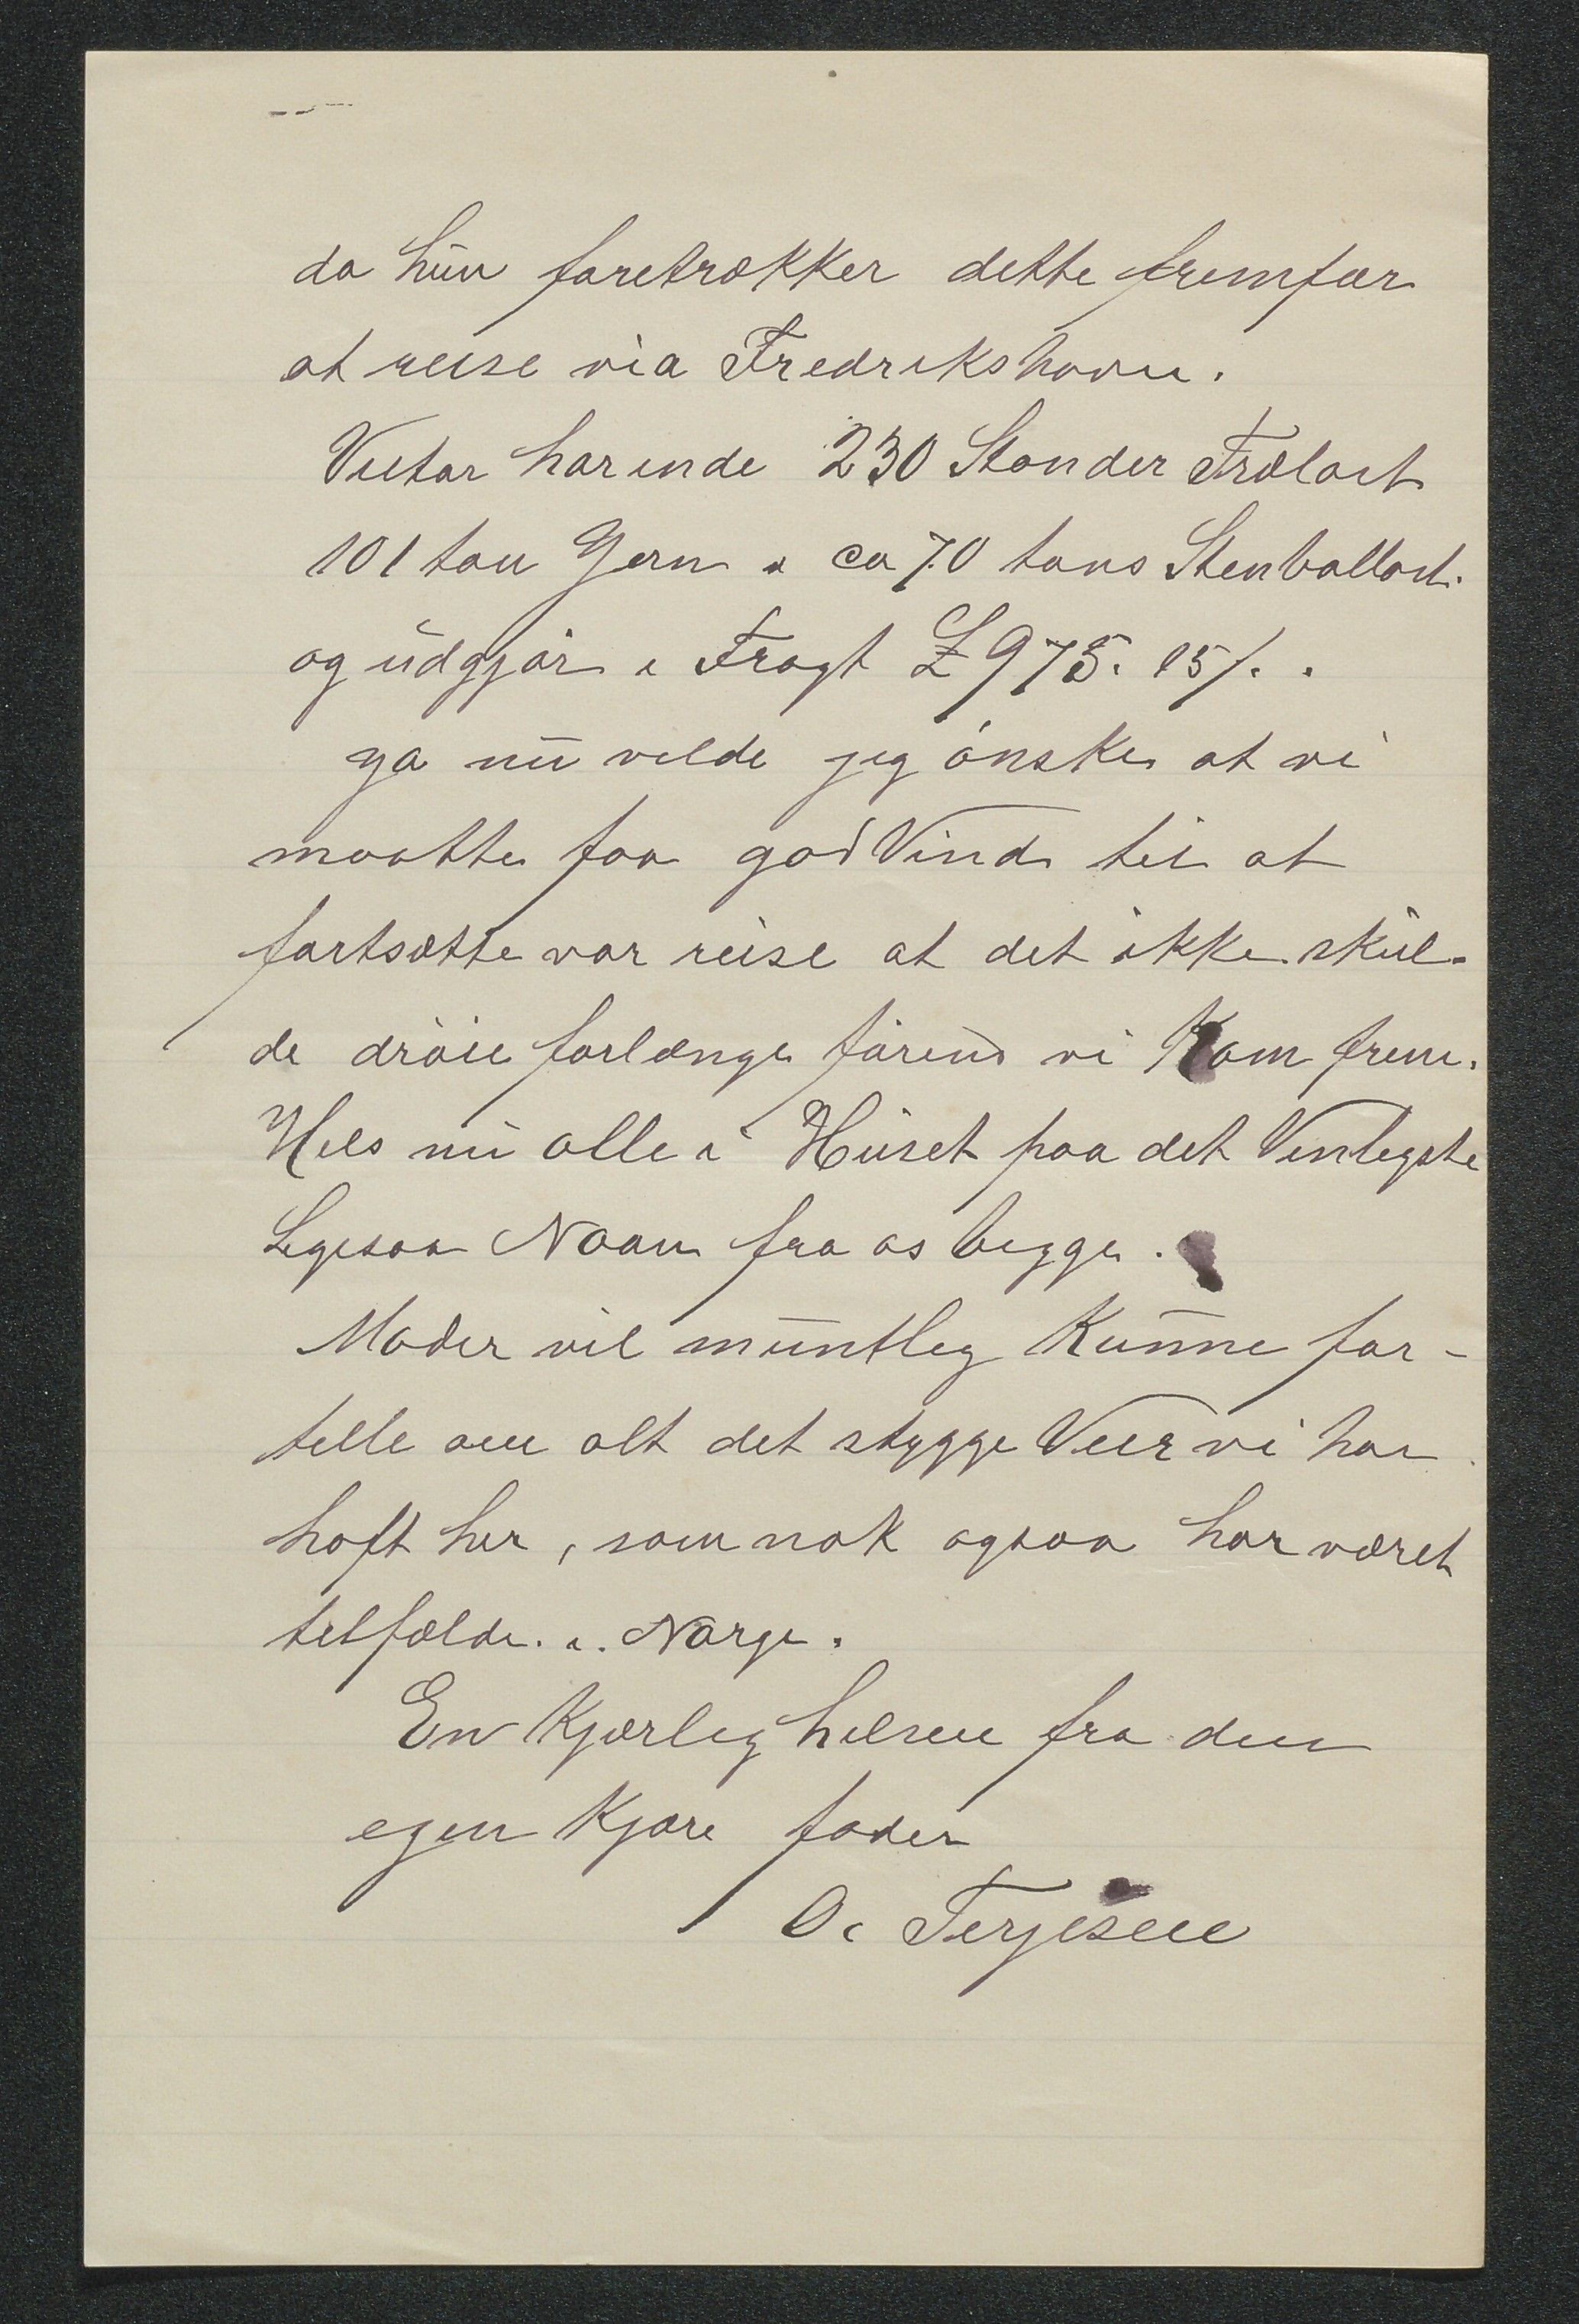 da hun foretrækker dette fremfor
at reise via Fredrikshavn.
Victor har inde 230 Stander Trælast
101 ton Jern & ca 70 tons Stenballast.
og udgjør i Fragt £975. 15/. .
ja nu vilde jeg ønske at vi
maatte faa god Vind til at
fortsætte vor reise at det ikke skul-
de drøie forlænge førend vi Kom frem.
Hils nu alle i Huset paa det Venligste
Ligesaa Naan fra os begge.
Moder vil muntlig Kunne for-
telle om alt det stygge Veir vi har
haft her, som nok ogsaa har været
tilfælde. i. Norge.
En Kjærlig hilsen fra din
egen Kjære fader
O. Terjesen